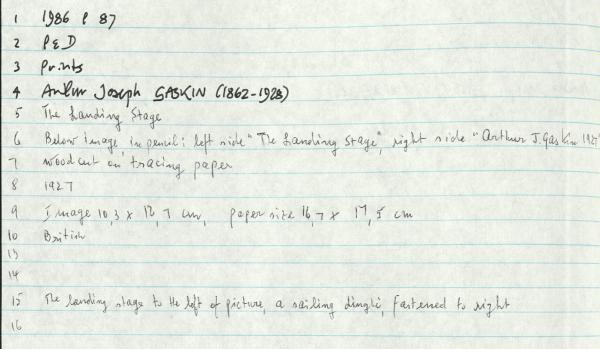 1 1986 P 87
2 P&D
3 Prints
4 Arthur Joseph GASKIN (1862-1928)
5 The Landing Stage
6 Below image, in pencil: left side "The Landing Stage", right side "Arthur J. Gaskin 1927"
7 woodcut on tracing paper
8 1927
9 Image 10,3 x 12,7 cm, paper size 16,7 x 17,5 cm
10 British
13
14
15 The landing stage to the left of picture, a sailing dinghi, fastened to right
16